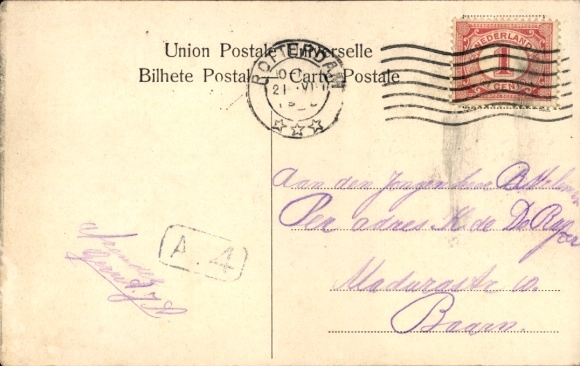 Union Postale Universelle
Bilhete Postal — Carte Postale
ROTTERDAM
21 VI
NEDERLAND
1
CENT
Aan den Jongenheer B.
Per adres K. de
Madurastr 10.
Baarn.
A. 4